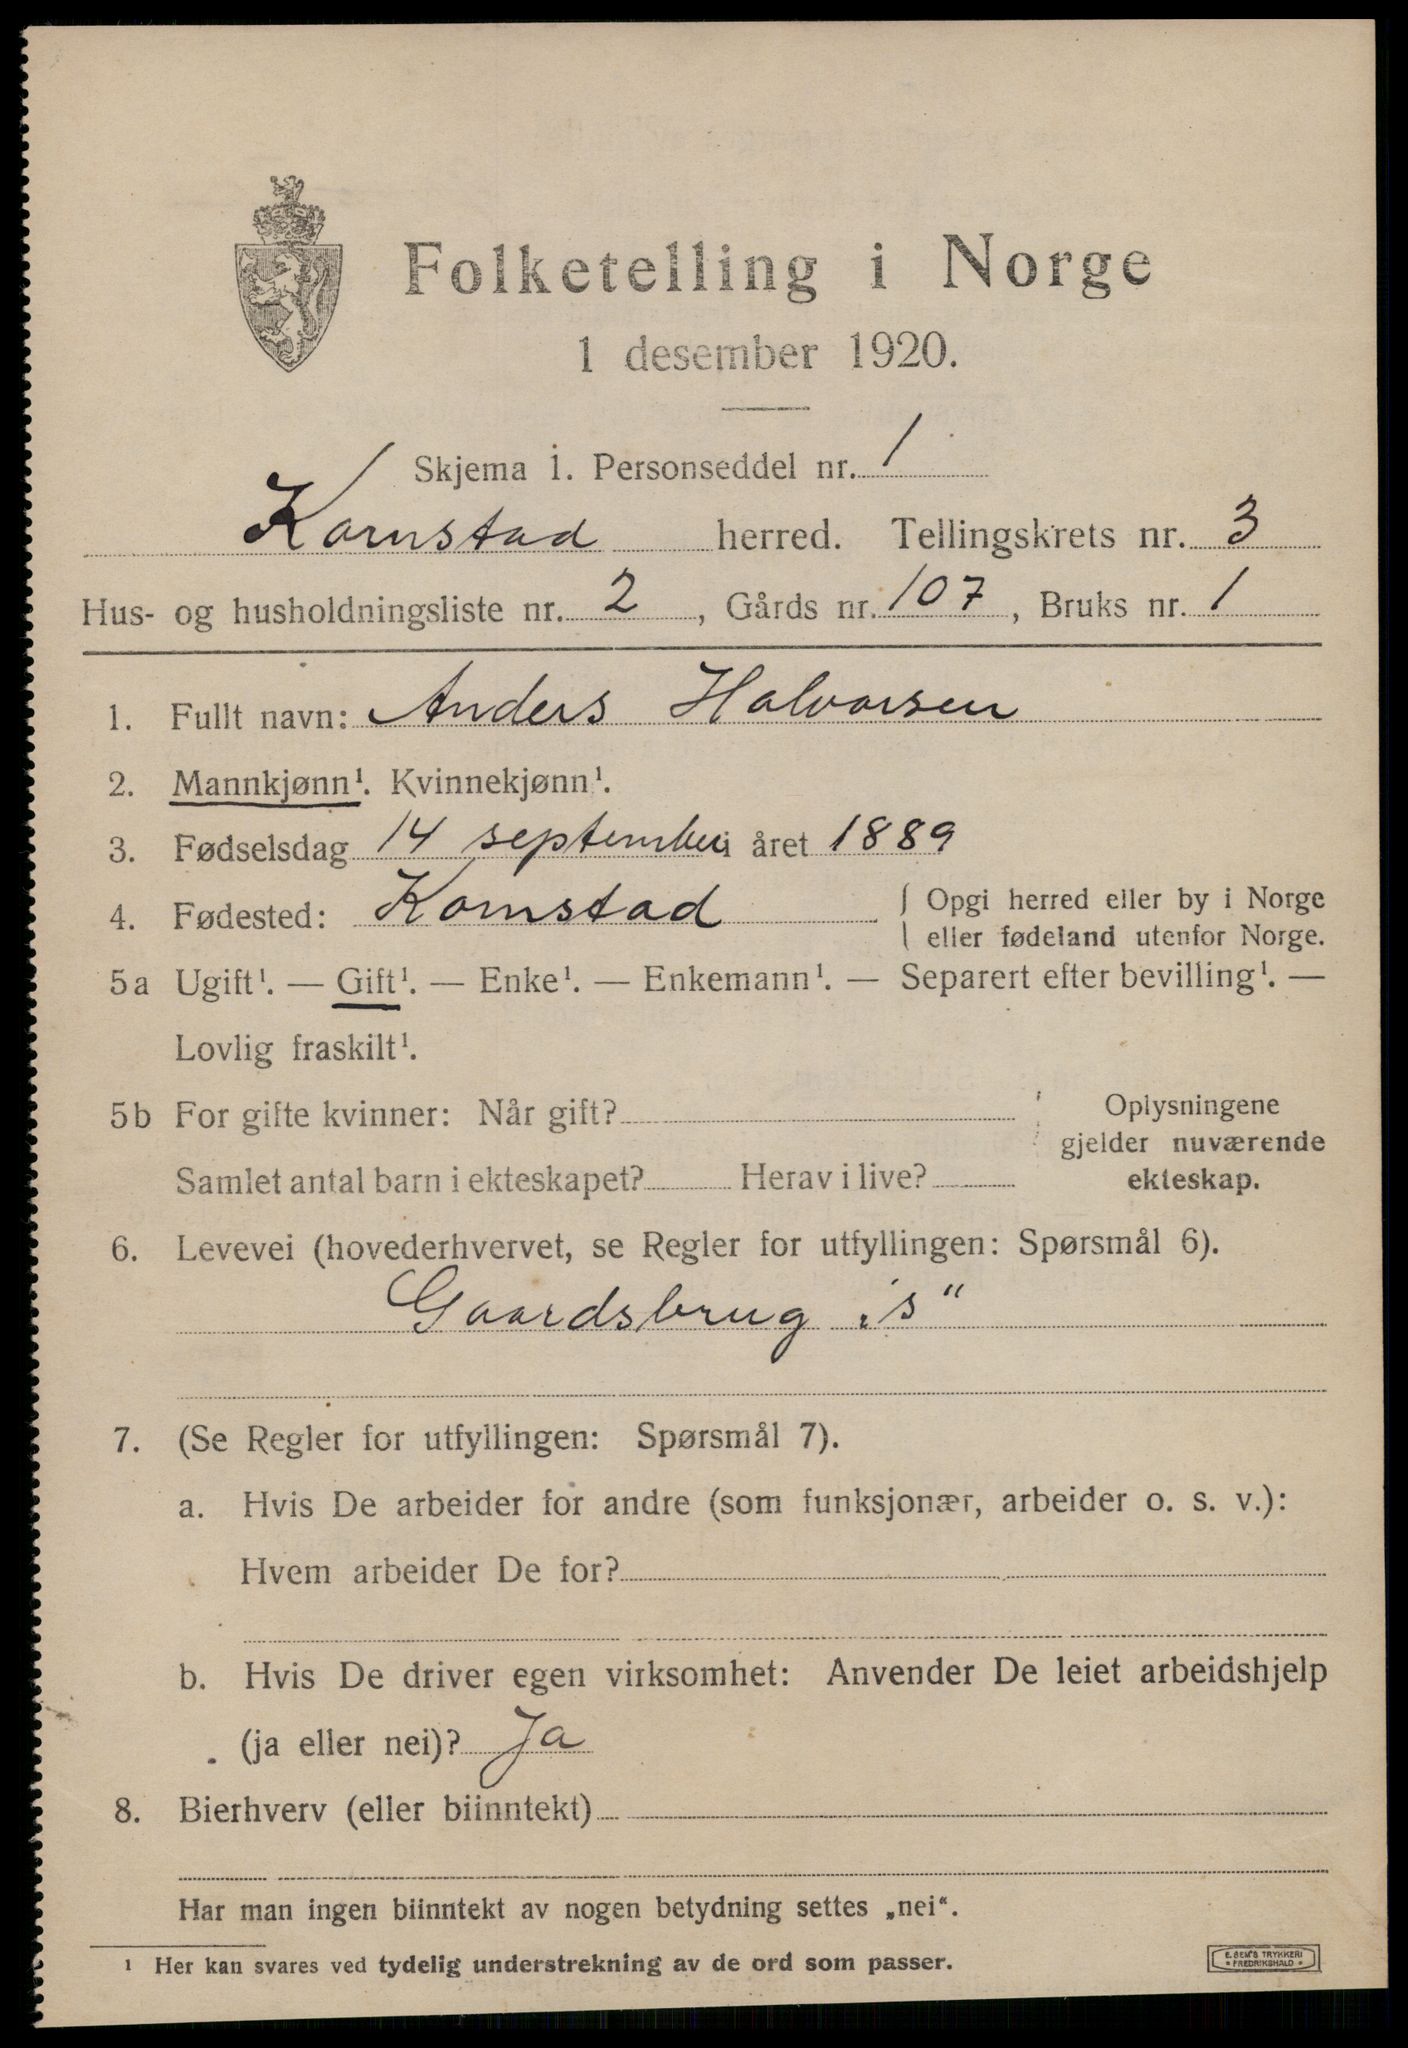 Folketelling i Norge
1 desember 1920.
Skjema 1. Personseddel nr. 1
Kornstad herred. Tellingskrets nr. 3
Hus- og husholdningsliste nr. 2, Gårds nr. 107, Bruks nr. 1
1. Fullt navn: Anders Halvorsen
2. Mannkjønn¹. Kvinnekjønn¹.
3. Fødselsdag 14 september i året 1889
4. Fødested: Kornstad { Opgi herred eller by i Norge
eller fødeland utenfor Norge.
5a Ugift¹. — Gift¹. — Enke¹. — Enkemann¹. — Separert efter bevilling¹. —
Lovlig fraskilt¹.
5b For gifte kvinner: Når gift? Oplysningene
gjelder nuværende
Samlet antal barn i ekteskapet? Herav i live? ekteskap.
6. Levevei (hovederhvervet, se Regler for utfyllingen: Spørsmål 6).
Gaardsbrug „s“
7. (Se Regler for utfyllingen: Spørsmål 7).
a. Hvis De arbeider for andre (som funksjonær, arbeider o. s. v.):
Hvem arbeider De for?
b. Hvis De driver egen virksomhet: Anvender De leiet arbeidshjelp
(ja eller nei)? Ja
8. Bierhverv (eller biinntekt)
Har man ingen biinntekt av nogen betydning settes „nei“.
¹ Her kan svares ved tydelig understrekning av de ord som passer.
E. SEM'S TRYKKERI
* FREDRIKSHALD *